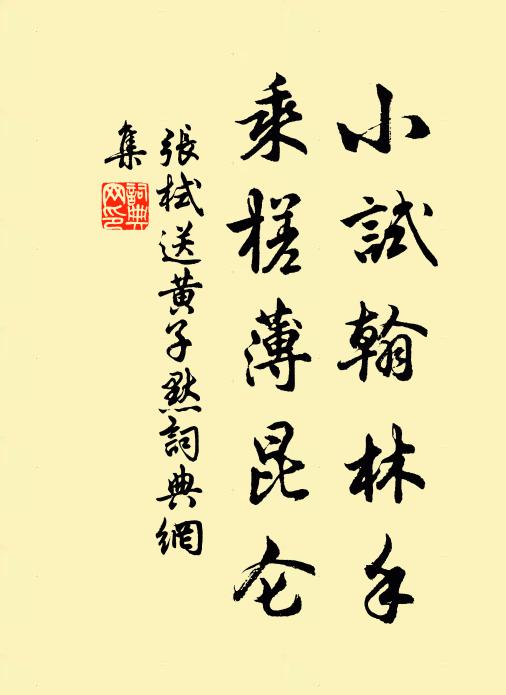 小試翰林手
乘槎薄昆仑
張栻送黄子默詞典網
集
詞典网印